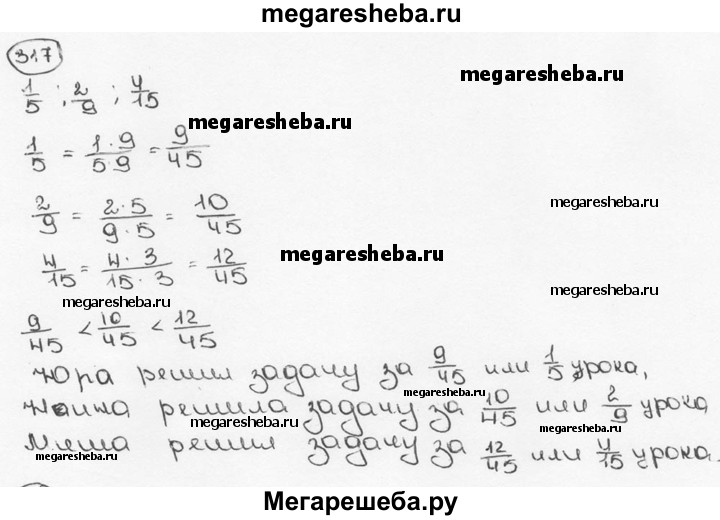 megaresheba.ru
317
1/5 ; 2/9 ; 4/15
megaresheba.ru
megaresheba.ru
1/5 = 1·9/5·9 = 9/45
2/9 = 2·5/9·5 = 10/45
megaresheba.ru
4/15 = 4·3/15·3 = 12/45
megaresheba.ru
megaresheba.ru
9/45 < 10/45 < 12/45
Юра решил задачу за 9/45 или 1/5 урока,
megaresheba.ru
решила задачу за 10/45 или 2/9 урока
megaresheba.ru
Миша решил задачу за 12/45 или 4/15 урока.
megaresheba.ru
Мегарешеба.ру